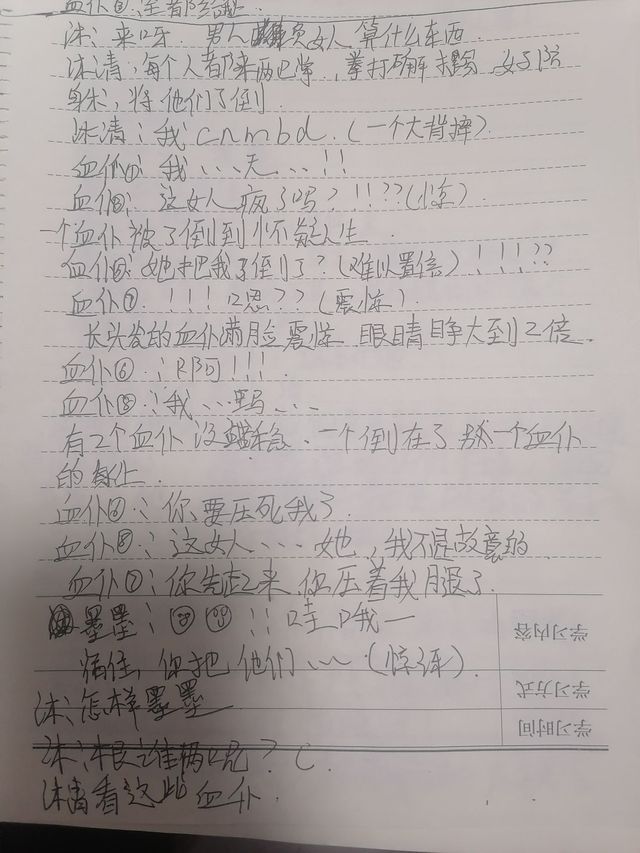 血仆⑧:全都给
沐:来呀.男人欺负女人算什么东西.
沐清:每个人都来两巴掌,拳打脚踢.女子防
身术,将他们了倒.
沐清:我cnmbd.(一个大背摔).
血仆①:我...天...!!
血仆⑧:这女人疯了吗?!!??(惊)
一个血仆被了倒到怀疑人生.
血仆⑥:她把我了倒了?(难以置信)!!!??
血仆⑦.!!!嗯??(震惊).
长头发的血仆满脸震惊.眼睛睁大到2倍.
血仆⑥:啊!!!
血仆⑧:我...吗...
有2个血仆没站稳.一个倒在了另一个血仆
的身上.
血仆④:你要压死我了
血仆⑧:这女人...她,我不是故意的
血仆⑦:你先起来你压着我腿了.
墨墨:!!哇哦一
痛住,你把他们...(惊讶).
沐:怎样墨墨
沐:谁俩呢?
沐清看这些血仆.
学习内容
学习方式
学习时间